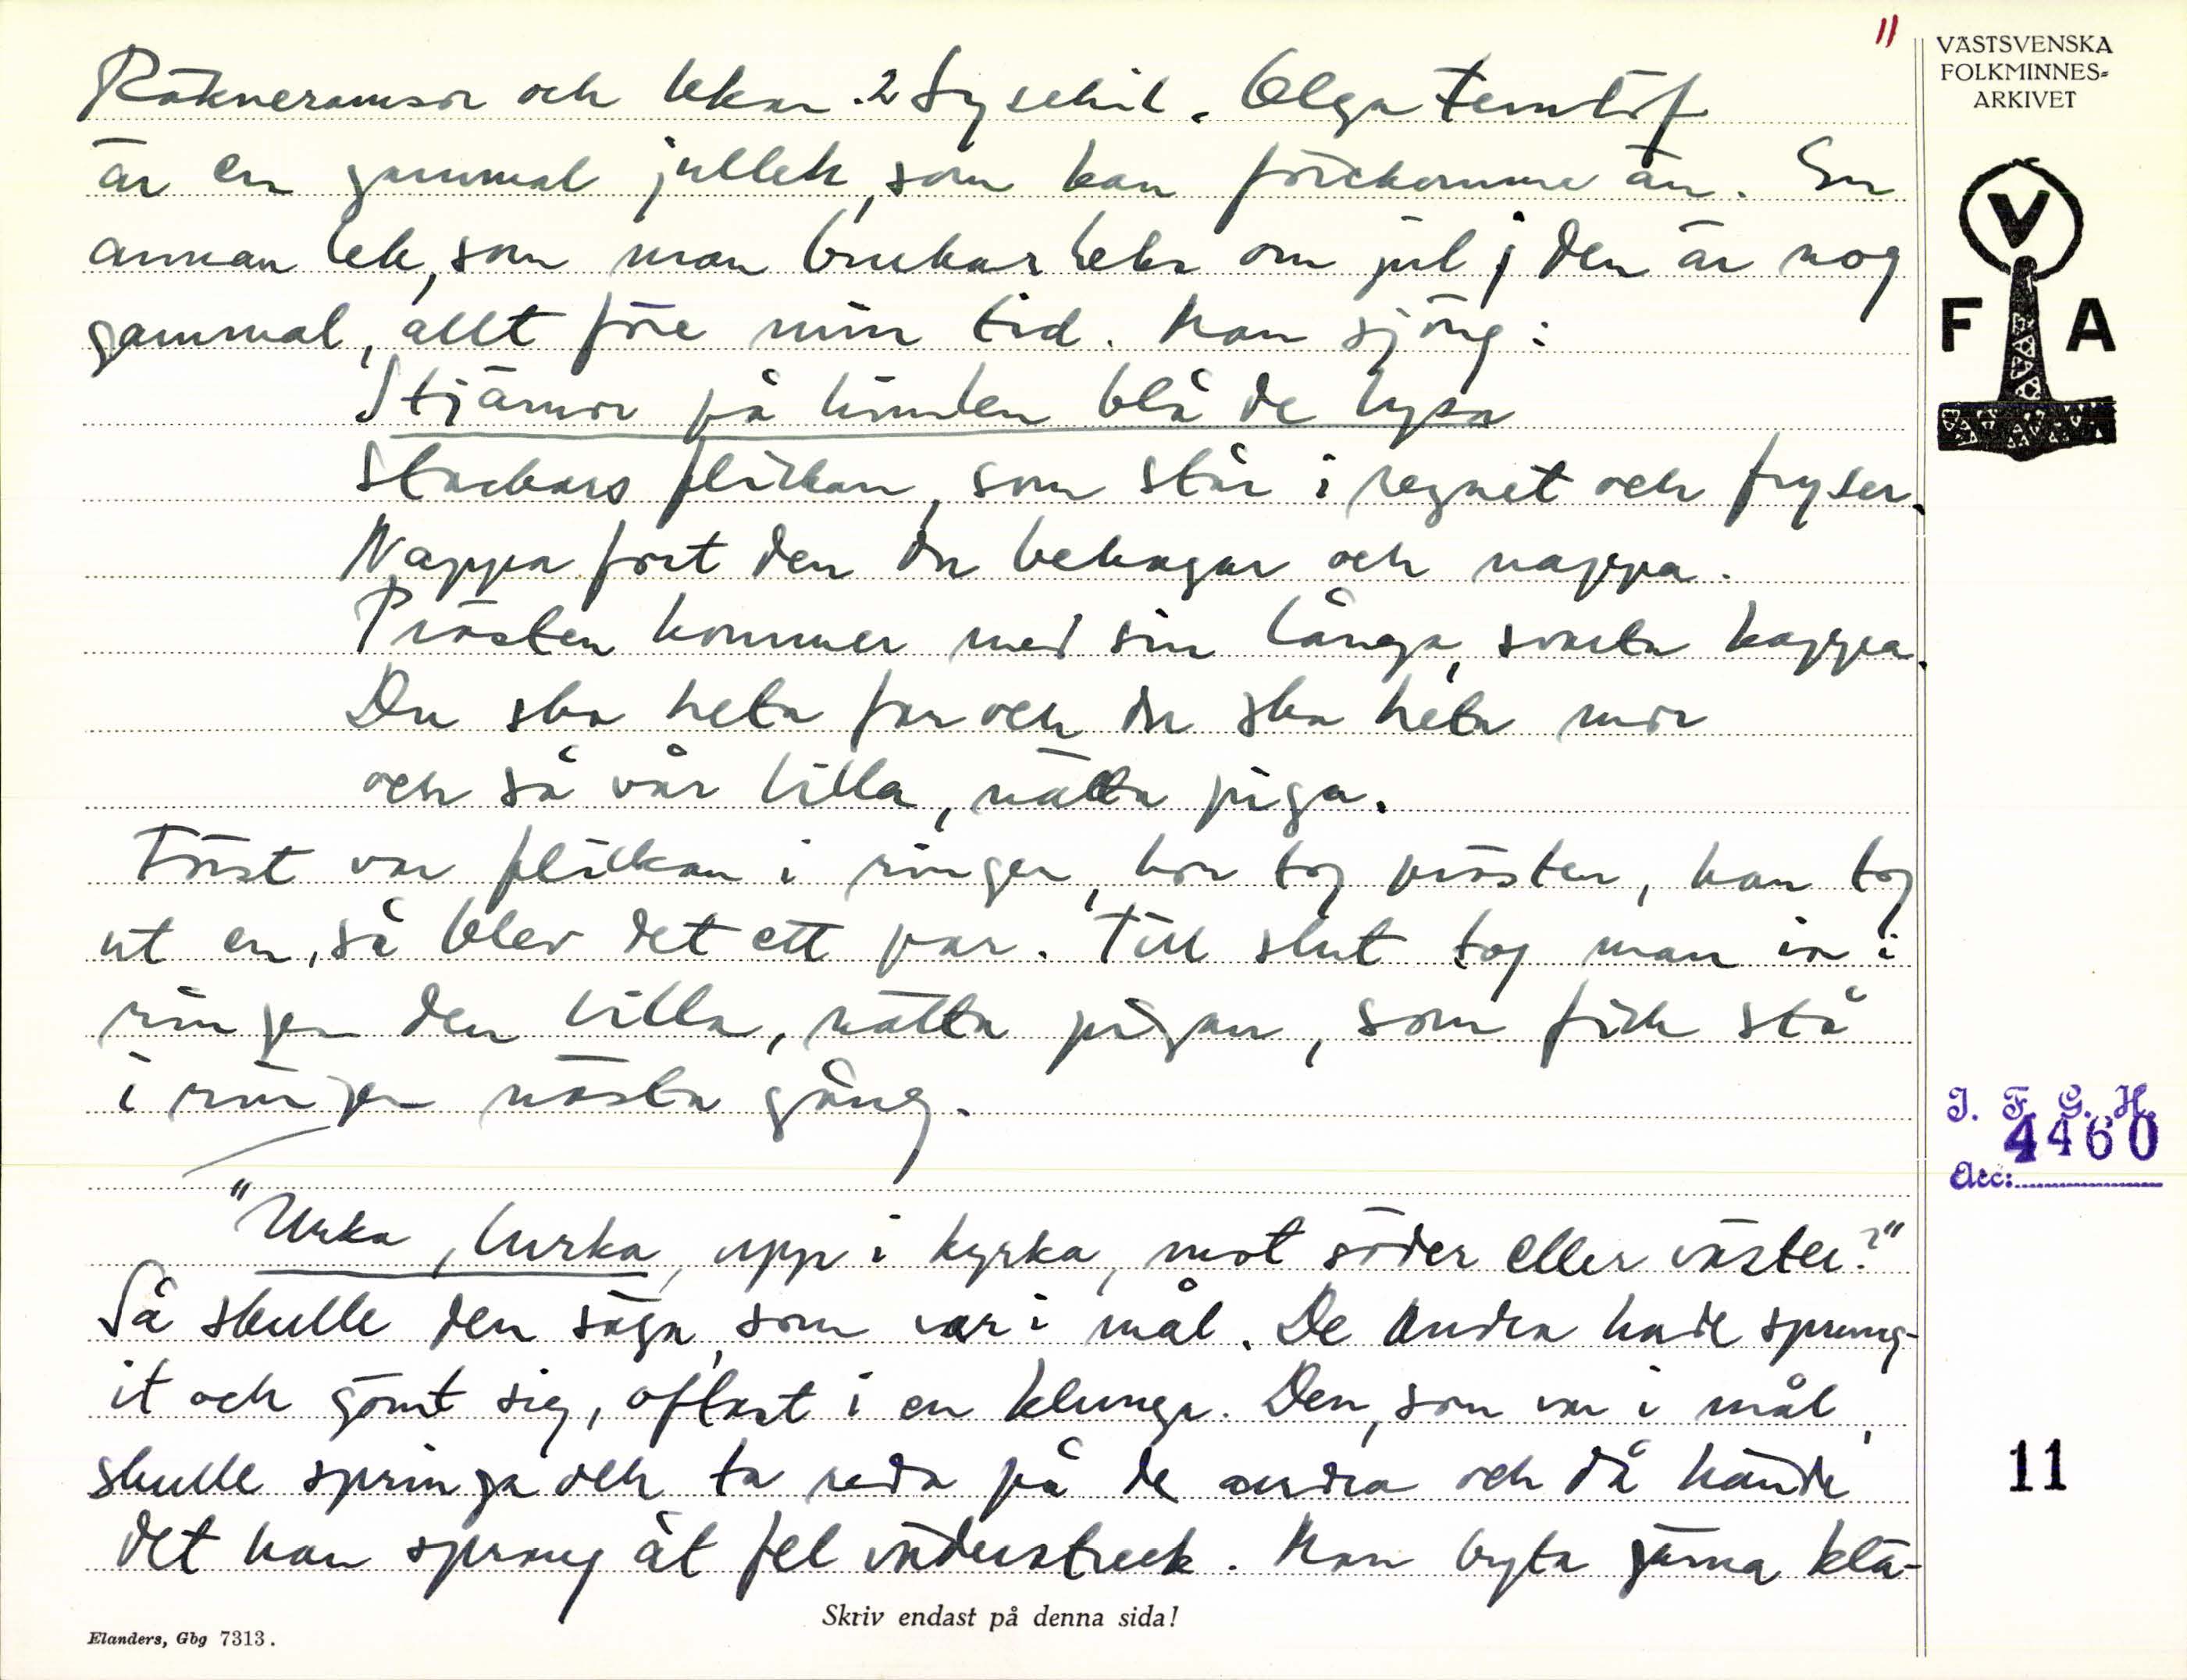 11
VÄSTSVENSKA
FOLKMINNES=
ARKIVET
V
F A
Räkneramsor och lekar. 2 Lysekil. Olga
är en gammal jullek, som kan förekomma än. En
annan lek, som man brukar leka om jul; den är nog
gammal, allt före min tid. Man sjöng:
Stjärnor på himlen blå de lysa
Stackars flickan, som står i regnet och fryser.
Nappa fort den du behagar och nappa.
Prästen kommer med sin långa, svarta kappa.
Du ska heta far och du ska heta mor
och så vår lilla, nätta piga.
Först var flickan i ringen, hon tog prästen, han tog
ut en, så blev det ett par. Till slut tog man in i
ringen den lilla, nätta pigan, som fick stå
i ringen nästa gång.
"Urka, lurka, upp i kyrka, mot söder eller väster?"
Så skulle den säga, som var i mål. De andra hade sprung-
it och gömt sig, oftast i en klunga. Den, som var i mål,
skulle springa och ta reda på de andra och då hände
det han sprang åt fel väderstreck. Man byta gärna klä-
I. F. G. H.
4460
Acc:
11
Skriv endast på denna sida!
Elanders, Gbg 7313.